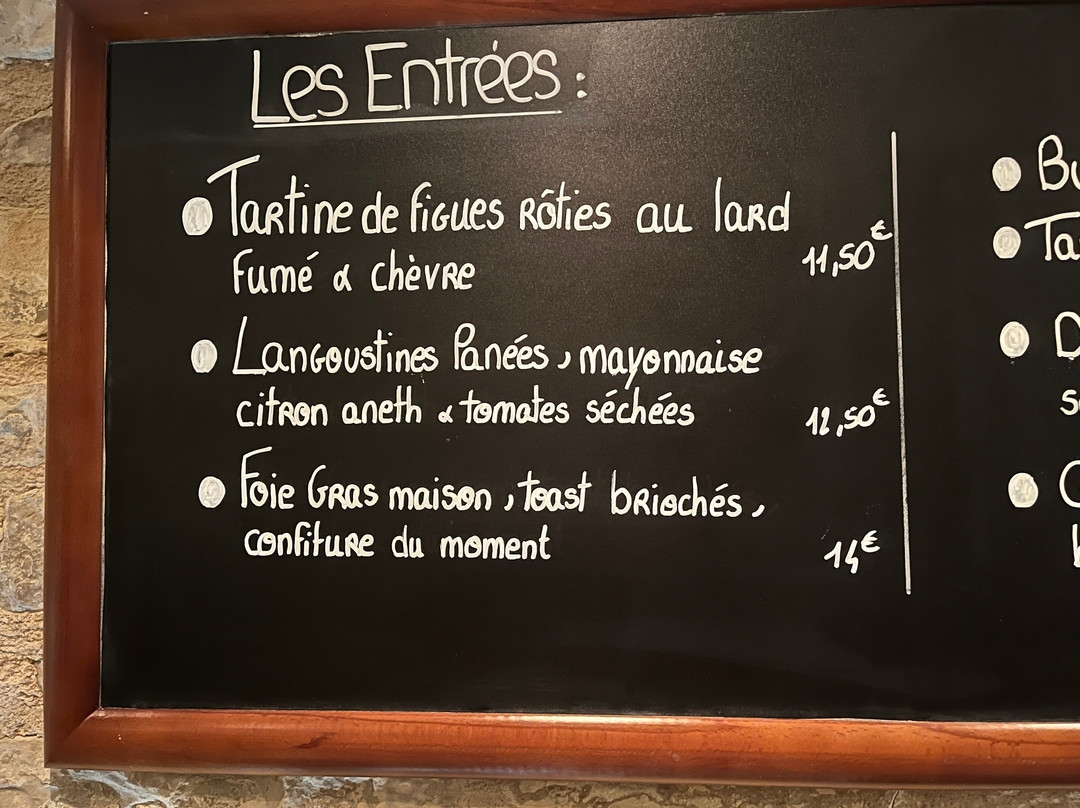 Les Entrées :
Tartine de figues rôties au lard
fumé & chèvre 11,50€
Langoustines Panées, mayonnaise
citron aneth & tomates séchées 12,50€
Foie Gras maison, toast briochés,
confiture du moment 14€